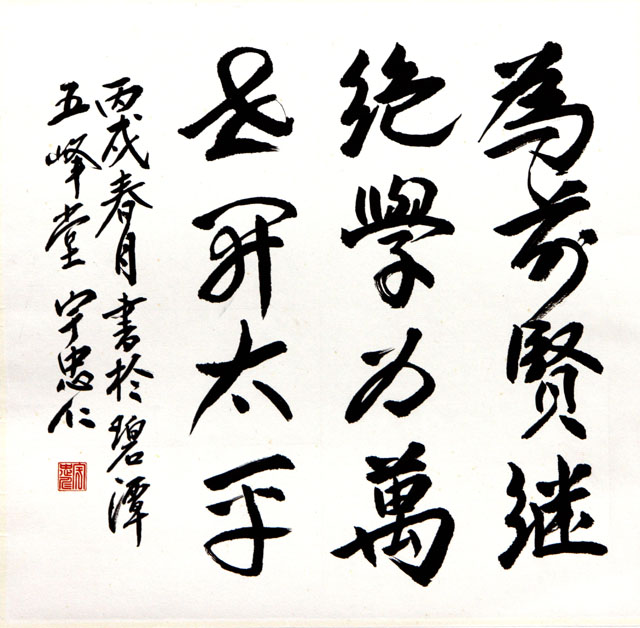 為前賢继
絶學为萬
世開太平
丙戌春月書於碧潭
五峰堂 宇忠仁